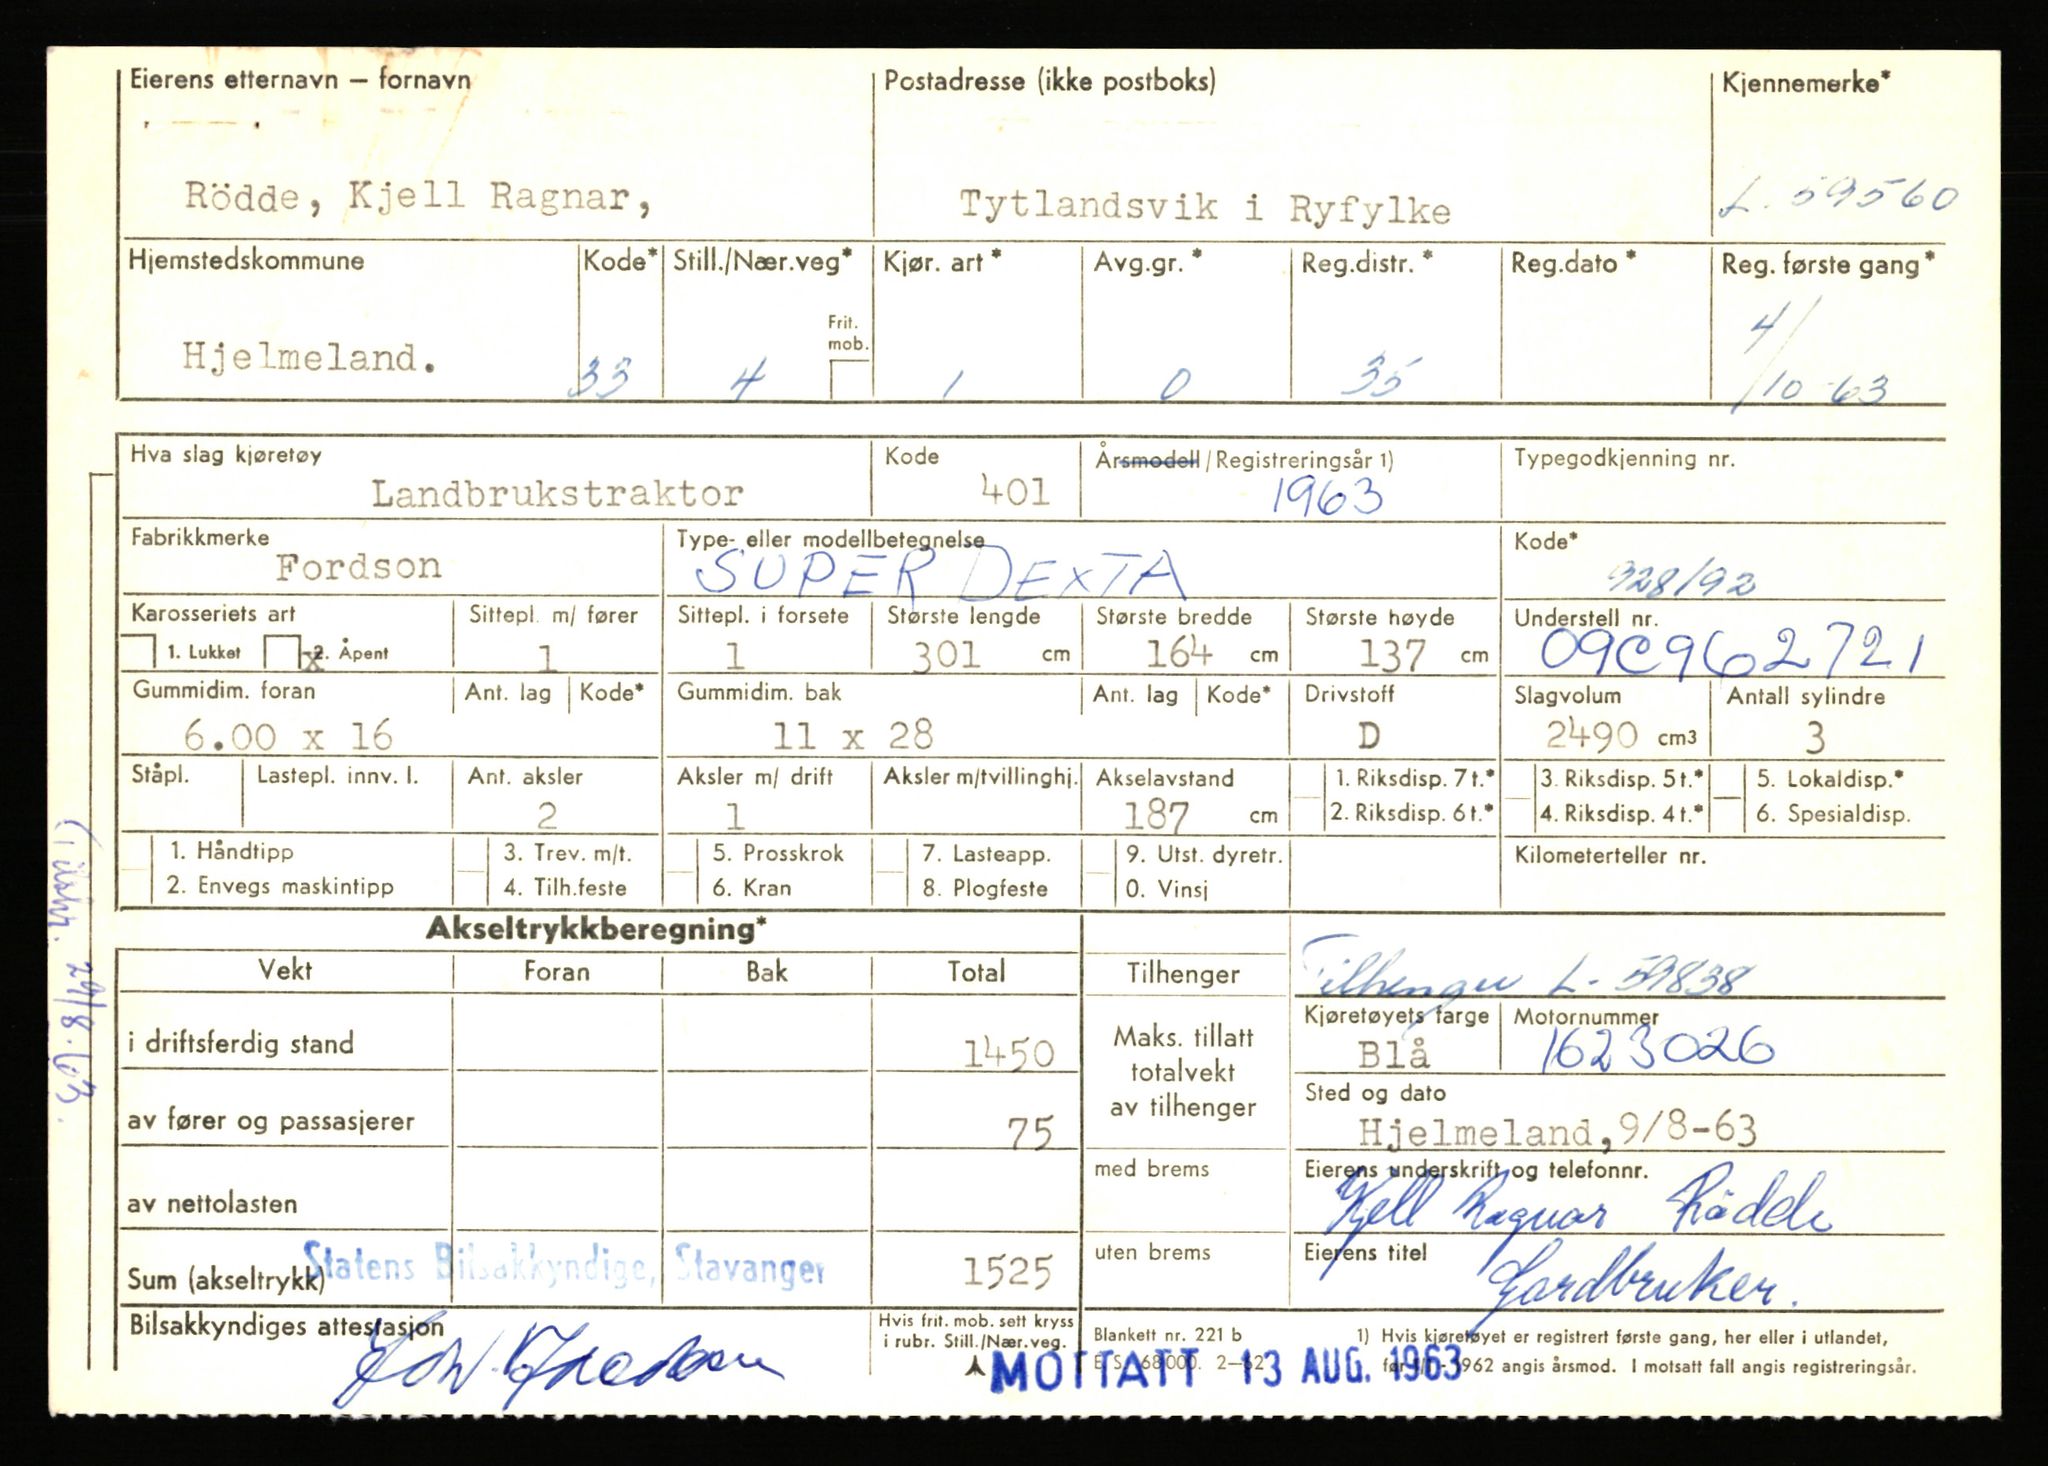 Eierens etternavn – fornavn Postadresse (ikke postboks) Kjennemerke*
Rödde, Kjell Ragnar, Tytlandsvik i Ryfylke L. 59560
Hjemstedskommune Kode* Still./Nær.veg* Kjør. art* Avg.gr.* Reg.distr.* Reg.dato* Reg. første gang*
Frit. mob.
Hjelmeland. 33 4 1 0 35 4/10-63
Hva slag kjøretøy Kode Årsmodell/Registreringsår 1) Typegodkjenning nr.
Landbrukstraktor 401 1963
Fabrikkmerke Type- eller modellbetegnelse Kode*
Fordson SUPER DEXTA 928/92
Karosseriets art Sittepl. m/ fører Sittepl. i forsete Største lengde Største bredde Største høyde Understell nr.
1. Lukket x 2. Åpent 1 1 301 cm 164 cm 137 cm 09C962721
Gummidim. foran Ant. lag Kode* Gummidim. bak Ant. lag Kode* Drivstoff Slagvolum Antall sylindre
6.00 x 16 11 x 28 D 2490 cm3 3
Ståpl. Lastepl. innv. l. Ant. aksler Aksler m/ drift Aksler m/tvillinghj. Akselavstand 1. Riksdisp. 7 t.* 3. Riksdisp. 5 t.* 5. Lokaldisp.*
2 1 187 cm 2. Riksdisp. 6 t.* 4. Riksdisp. 4 t.* 6. Spesialdisp.
1. Håndtipp 3. Trev. m/t. 5. Prosskrok 7. Lasteapp. 9. Utst. dyretr. Kilometerteller nr.
2. Envegs maskintipp 4. Tilh.feste 6. Kran 8. Plogfeste 0. Vinsj
Akseltrykkberegning*
Vekt Foran Bak Total Tilhenger Tilhenger L-59838
Kjøretøyets farge Motornummer
i driftsferdig stand 1450 Maks. tillatt totalvekt av tilhenger Blå 1623026
Sted og dato
av fører og passasjerer 75 Hjelmeland, 9/8-63
med brems Eierens underskrift og telefonnr.
av nettolasten Kjell Ragnar Rödde
uten brems Eierens titel
Sum (akseltrykk) Statens Bilsakkyndige, Stavanger 1525 Gardbruker.
Bilsakkyndiges attestasjon Hvis frit. mob. sett kryss i rubr. Still./Nær.veg. Blankett nr. 221 b
1) Hvis kjøretøyet er registrert første gang, her eller i utlandet,
1962 angis årsmod. I motsatt fall angis registreringsår.
MOTTATT 13 AUG. 1963
29/8-63.